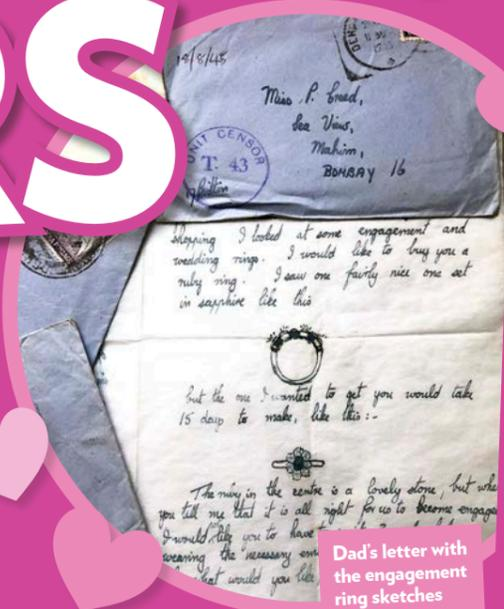 RS
18/8/45
Miss P. Creed,
Sea View,
Mahim,
BOMBAY 16
UNIT CENSOR
T. 43
shopping I looked at some engagement and
wedding rings. I would like to buy you a
ruby ring. I saw one fairly nice one set
in sapphire like this
but the one I wanted to get you would take
15 days to make, like this:-
The ruby in the centre is a lovely stone, but whe
you tell me that it is all right for us to become engage
I would like you to have
wearing the necessary
what would you like
Dad's letter with
the engagement
ring sketches